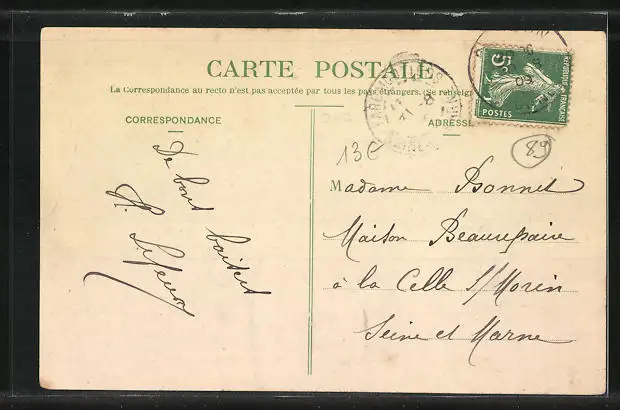 CARTE POSTALE
La Correspondance au recto n'est pas acceptée par tous les pays étrangers. (Se renseign
CORRESPONDANCE
ADRESSE
De bons baisers
5c
REPUBLIQUE FRANÇAISE
POSTES
13€
89
Madame Bonnet
Maison Beaurepaire
à la Celle S/Morin
Seine et Marne